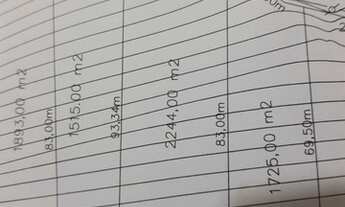 1893,00 m2
83,00m
1515,00 m2
93,34m
2244,00 m2
83,00m
1725,00 m2
69,50m